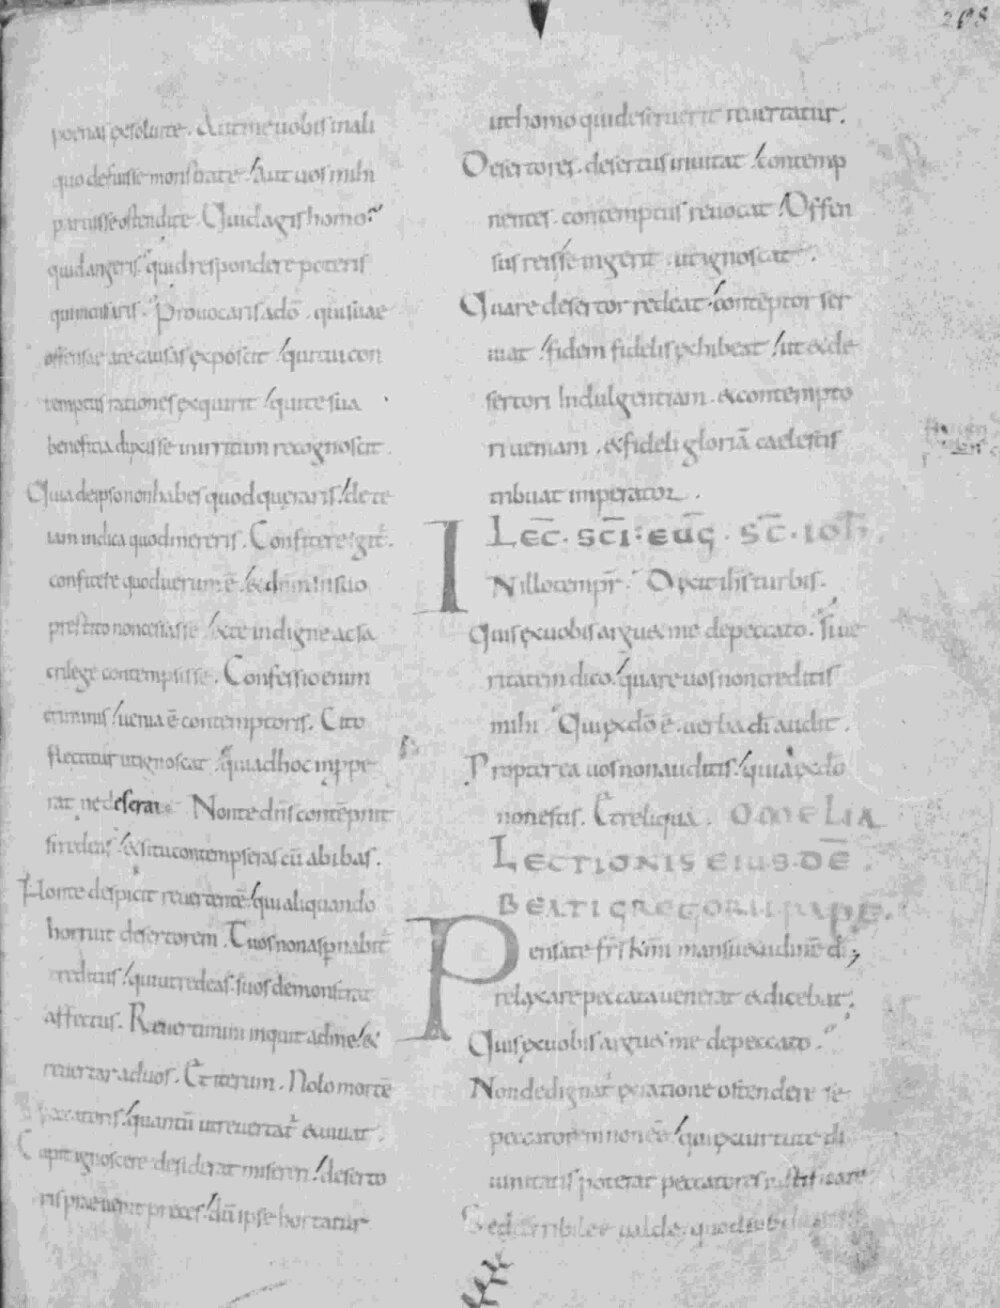 208
poenas persoluite. Aut me uobis in ali
quo defuisse monstrate / Aut uos mihi
paruisse ostendite. Quid agis homo
quid angeris. quid respondere poteris
Prouocaris ad dõ. qui suae
offensae a te causas exposcit / qui tui con
temptus rationes exquirit / qui te sua
beneficia dixisse inirritum recognoscit.
Quia de ipso non habes quod queraris / de te
tam indica quod mereris. Confitere igit̃.
confitere quod uerum ẽ / & dñm in suo
prestito non cessasse / & te indigne ac sa
crilege contempsisse. Confessio enim
criminis / uenia ẽ contemptoris. Cito
flectitur ut ignoscat / qui adhoc inppe
rat ne deserat. Non te dñs contẽpnit
si redeas / & si tu contempseras cũ abibas.
Non te despicit reuertentẽ / qui aliquando
horruit desertorem. Tuos non aspnabit̃
reditus / qui ut redeas. suos demonstrat
affectus. Reuertimini inquit ad me / &
reuertar ad uos. Et iterum. Nolo mortẽ
peccatoris / quantũ ut reuertat̃ & uiuat.
Capit ignoscere desiderat misereri / deserto
ris praeuenit preces / dũ ipse hortatur
ut homo qui deseruerit reuertatur.
Desertores. desertus inuitat / contemp
nentes. contemptus reuocat / Offen
sus reisse ingerit. ut ignoscat.
Quare desertor redeat / contẽptor ser
uat / fidem fidelis exhibeat / ut & de
sertori Indulgentiam. & contempto
ri ueniam. & fideli gloriã caelestis
tribuat imperator.
LEC̄. SC̄I. EUḠ. SC̄. IOH̄.
IN illo tempr̃. Dixit ih̃s turbis.
Quis ex uobis arguet me de peccato. si ue
ritatem dico / quare uos non creditis
mihi. Qui ex dõ ẽ. uerba dĩ audit.
Propterea uos non auditis / quia ex dõ
non estis. Et reliqua. OMELIA
LECTIONIS EIUSDẼ.
BEATI GREGORII PAPE.
Pensate fr̃s km̃i mansuetudinẽ dĩ;
relaxare peccata uenerat & dicebat;
Quis ex uobis arguet me de peccato.
Non dedignat̃ ex ratione ostendere se
peccatorem non eẽ / qui ex uirtute di
uinitatis poterat peccatores iustificare
Sed terribile ualde. quod subi